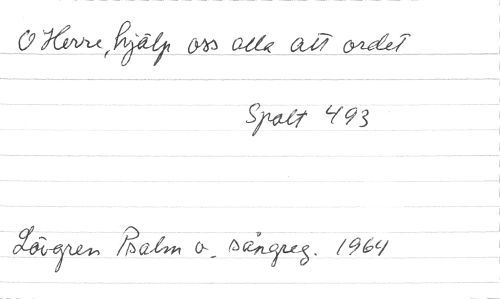 O Herre, hjälp oss alla att ordet
Spalt 493
Lövgren Psalm o. sångreg. 1964